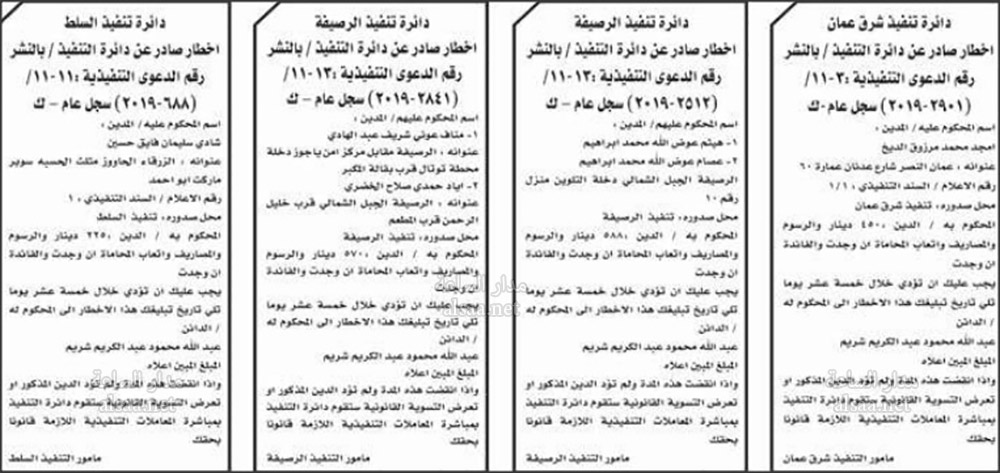 دائرة تنفيذ شرق عمان
اخطار صادر عن دائرة التنفيذ / بالنشر
رقم الدعوى التنفيذية :٣-١١/
(٢٩٠١-٢٠١٩) سجل عام -ك
اسم المحكوم عليه/ المدين :
امجد محمد مرزوق الدبخ
عنوانه : عمان النصر شارع عدنان عمارة ٦٠
رقم الاعلام / السند التنفيذي : ١/١
محل صدوره: تنفيذ شرق عمان
المحكوم به / الدين :٤٥٠ دينار والرسوم
والمصاريف واتعاب المحاماة ان وجدت والفائدة
ان وجدت
يجب عليك ان تؤدي خلال خمسة عشر يوما
تلي تاريخ تبليغك هذا الاخطار الى المحكوم له
/ الدائن
عبد الله محمود عبد الكريم شريم
المبلغ المبين اعلاه
واذا انقضت هذه المدة ولم تؤد الدين المذكور او
تعرض التسوية القانونية ستقوم دائرة التنفيذ
بمباشرة المعاملات التنفيذية اللازمة قانونا
بحقك
مامور التنفيذ شرق عمان
دائرة تنفيذ الرصيفة
اخطار صادر عن دائرة التنفيذ / بالنشر
رقم الدعوى التنفيذية :١٣-١١/
(٢٥١٢-٢٠١٩) سجل عام – ك
اسم المحكوم عليهم/ المدين :
١- هيثم عوض الله محمد ابراهيم
٢- عصام عوض الله محمد ابراهيم
الرصيفة الجبل الشمالي دخلة التلوين منزل
رقم ١٠
محل صدوره: تنفيذ الرصيفة
المحكوم به / الدين :٥٨٨ دينار والرسوم
والمصاريف واتعاب المحاماة ان وجدت والفائدة
ان وجدت
يجب عليك ان تؤدي خلال خمسة عشر يوما
تلي تاريخ تبليغك هذا الاخطار الى المحكوم له
/ الدائن
عبد الله محمود عبد الكريم شريم
المبلغ المبين اعلاه
واذا انقضت هذه المدة ولم تؤد الدين المذكور او
تعرض التسوية القانونية ستقوم دائرة التنفيذ
بمباشرة المعاملات التنفيذية اللازمة قانونا
بحقك
مامور التنفيذ الرصيفة
دائرة تنفيذ الرصيفة
اخطار صادر عن دائرة التنفيذ / بالنشر
رقم الدعوى التنفيذية :١٣-١١/
(٢٨٤١-٢٠١٩) سجل عام – ك
اسم المحكوم عليهم/ المدين :
١- مناف عوني شريف عبد الهادي
عنوانه : الرصيفة مقابل مركز امن ياجوز دخلة
محطة توتال قرب بقالة المكبر
٢- اياد حمدي صلاح الخضري
عنوانه : الرصيفة الجبل الشمالي قرب خليل
الرحمن قرب المطعم
محل صدوره: تنفيذ الرصيفة
المحكوم به / الدين :٥٧٠ دينار والرسوم
والمصاريف واتعاب المحاماة ان وجدت والفائدة
ان وجدت
يجب عليك ان تؤدي خلال خمسة عشر يوما
تلي تاريخ تبليغك هذا الاخطار الى المحكوم له
/ الدائن
عبد الله محمود عبد الكريم شريم
المبلغ المبين اعلاه
واذا انقضت هذه المدة ولم تؤد الدين المذكور او
تعرض التسوية القانونية ستقوم دائرة التنفيذ
بمباشرة المعاملات التنفيذية اللازمة قانونا
بحقك
مامور التنفيذ الرصيفة
دائرة تنفيذ السلط
اخطار صادر عن دائرة التنفيذ / بالنشر
رقم الدعوى التنفيذية :١١-١١/
(٦٨٨-٢٠١٩) سجل عام – ك
اسم المحكوم عليه/ المدين :
شادي سليمان فايق حسين
عنوانه : الزرقاء الحاووز مثلث الحسبه سوبر
ماركت ابو احمد
رقم الاعلام / السند التنفيذي : ١
محل صدوره: تنفيذ السلط
المحكوم به / الدين :٢٢٥ دينار والرسوم
والمصاريف واتعاب المحاماة ان وجدت والفائدة
ان وجدت
يجب عليك ان تؤدي خلال خمسة عشر يوما
تلي تاريخ تبليغك هذا الاخطار الى المحكوم له
/ الدائن
عبد الله محمود عبد الكريم شريم
المبلغ المبين اعلاه
واذا انقضت هذه المدة ولم تؤد الدين المذكور او
تعرض التسوية القانونية ستقوم دائرة التنفيذ
بمباشرة المعاملات التنفيذية اللازمة قانونا
بحقك
مامور التنفيذ السلط
مدار الساعة
alsaa.net
مدار الساعة
alsaa.net
مدار الساعة
alsaa.net